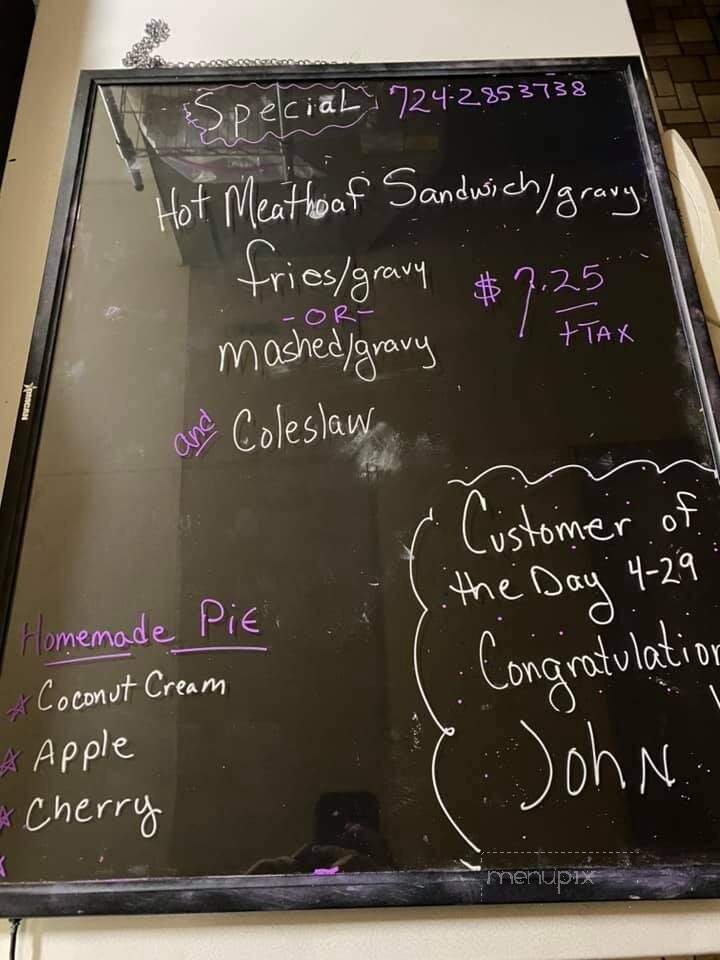 Special 724-2853738
Hot Meatloaf Sandwich/gravy
fries/gravy
$7.25
-OR-
+TAX
mashed/gravy
and Coleslaw
Customer of
the Day 4-29
Congratulation
John
Homemade Pie
Coconut Cream
Apple
Cherry
menupix